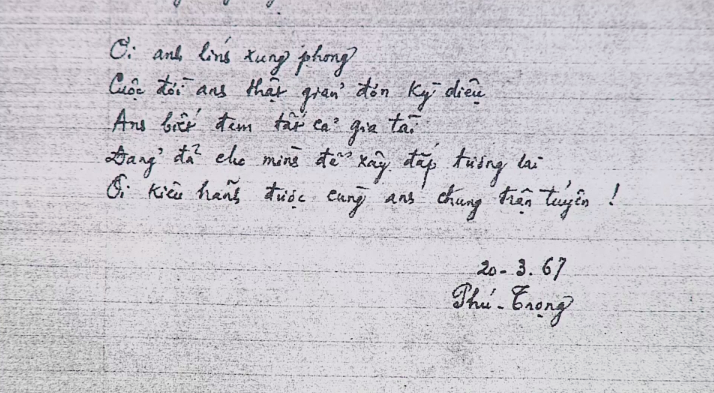 Ôi anh lính xung phong
Cuộc đời anh thật giản đơn kỳ diệu
Anh biết đem tất cả gia tài
Đảng đã cho mình để xây đắp tương lai
Ôi kiêu hãnh được cùng anh chung trận tuyến !
20-3.67
Phú-Trọng